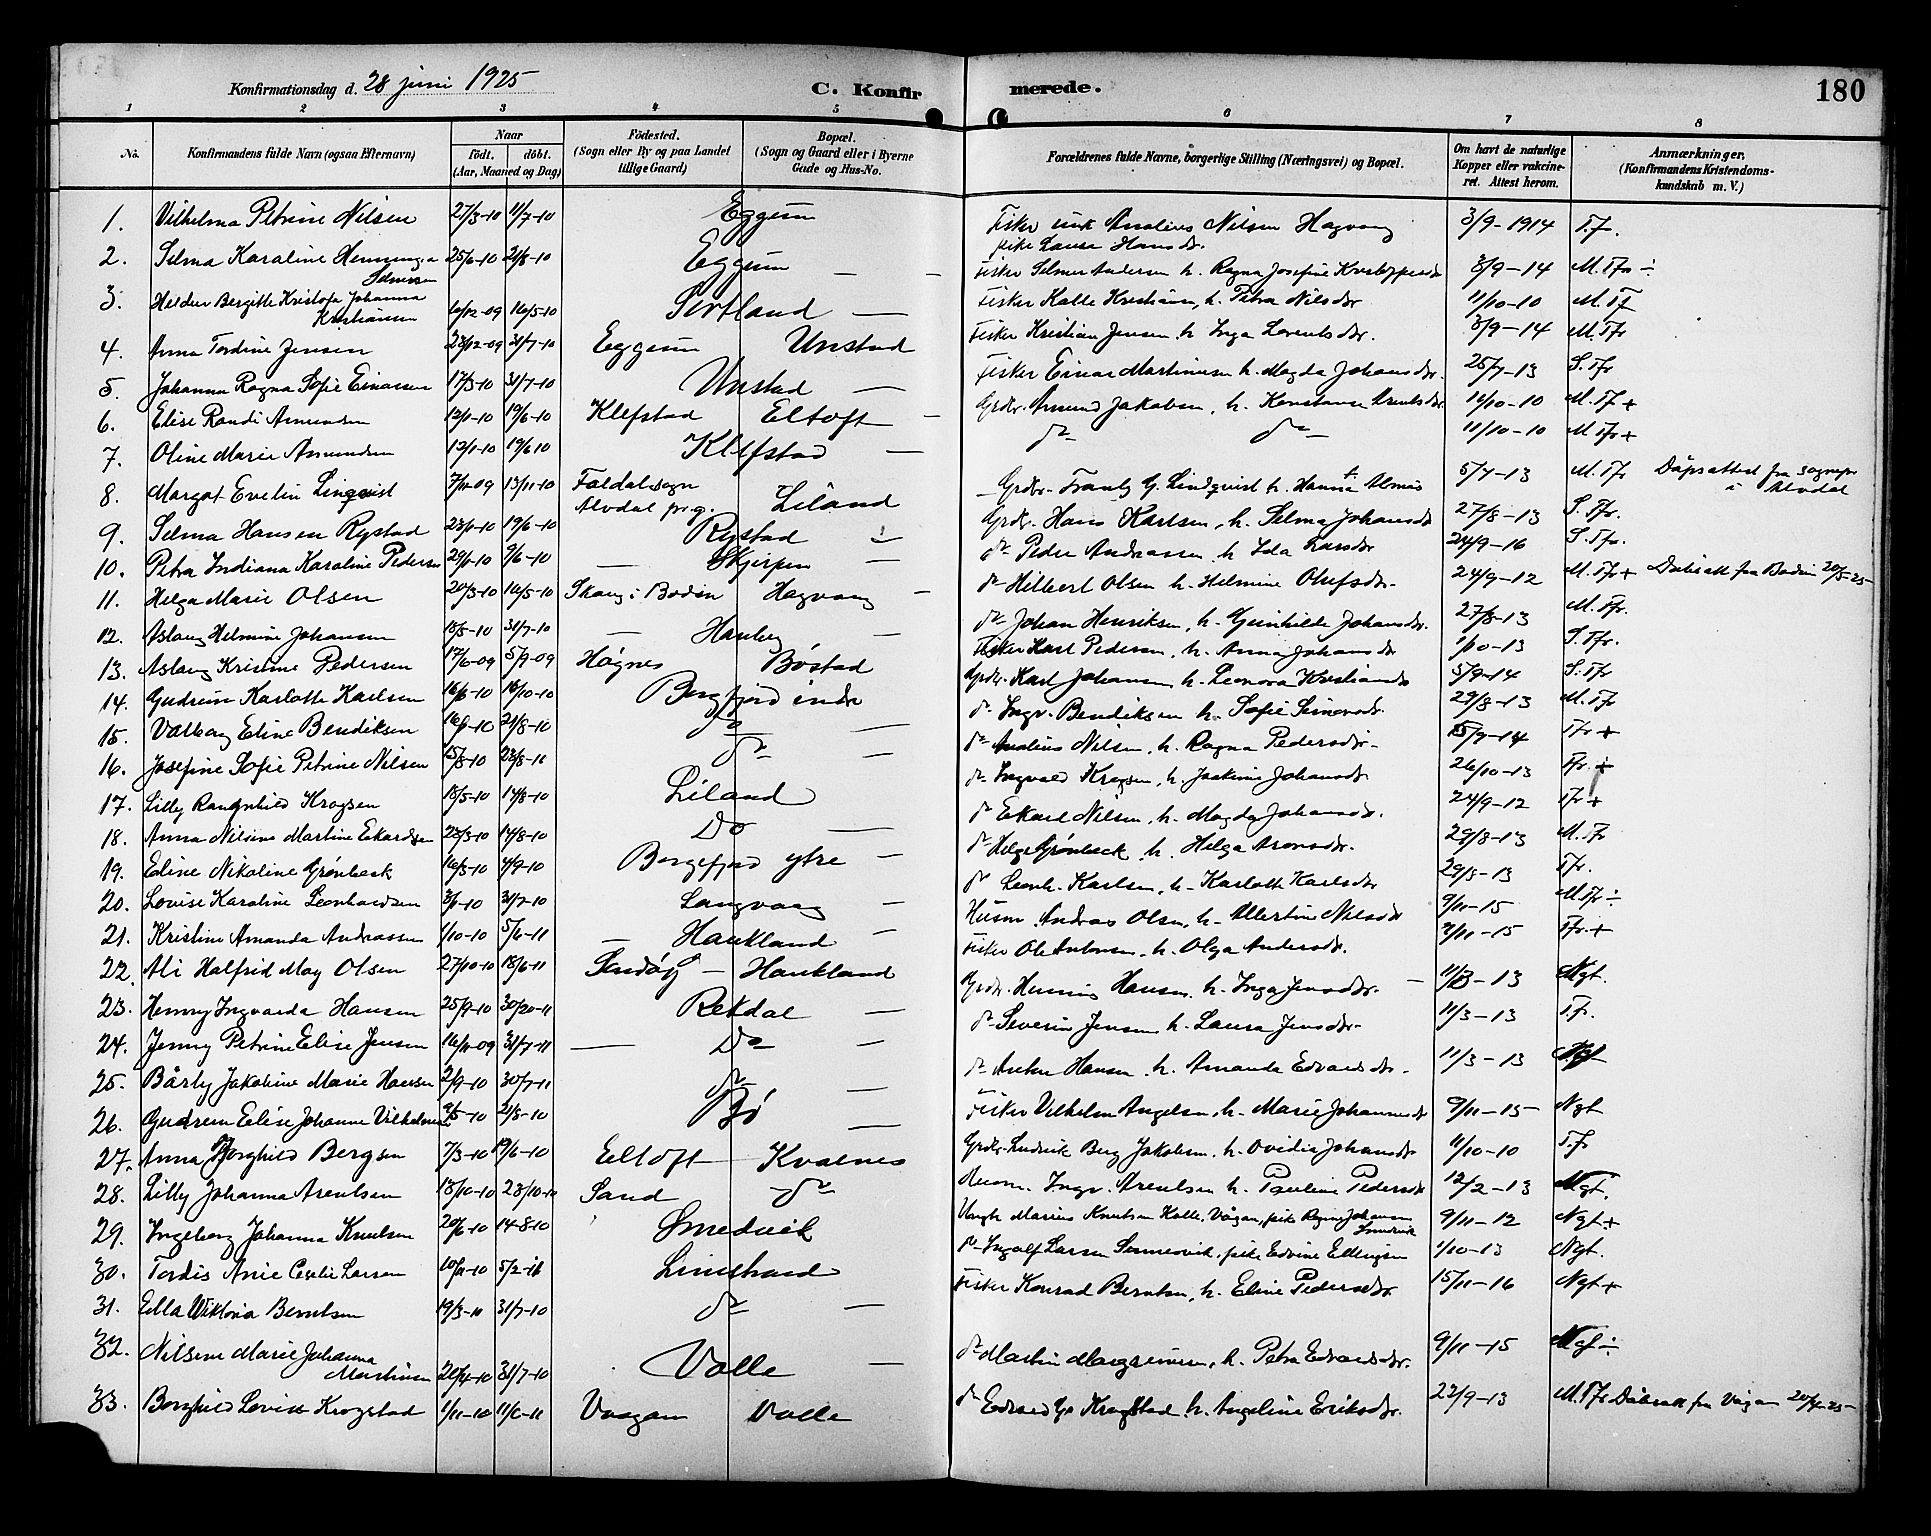 Konfirmationsdag d. 28 juni 1925
C. Konfirmerede.
180
1 2 3 4 5 6 7 8
No.
Konfirmandens fulde Navn (ogsaa Efternavn)
Naar
født. døbt.
(Aar, Maaned og Dag)
Fødested.
(Sogn eller By og paa Landet tillige Gaard)
Bopæl.
(Sogn og Gaard eller i Byerne Gade og Hus-No.
Forældrenes fulde Navne, borgerlige Stilling (Næringsvei) og Bopæl.
Om havt de naturlige Kopper eller vakcineret. Attest herom.
Anmærkninger.
(Konfirmandens Kristendomskundskab m. V.)
1. Vilhelma Petrine Nilsen 27/3-10 11/7-10 Eggum Fisker Nilsen Hagvaag 3/9-1914 T.f.
pike Laura Hansdr.
2. Selma Karaline Henninga 25/6-10 21/8-10 Eggum — — Fisker Selmer Andersen h. Ragna Josefine 3/9-14 M.Tfr ÷
Selmersen
3. Bergitte Kristofa Johanna
Kristiansen 16/12-09 16/5-10 Sortland — Fisker Kalle Kristiansen, h. Petra Nilsdtr 11/10-10 M.Tf
4. Anna Tordine Jensen 23/12-09 31/7-10 Eggum Unstad Fisker Kristian Jensen h. Inga Lorentsdtr. 3/9-14 M.Tfr
5. Johanna Ragna Sofie Einarsen 17/3-10 31/7-10 Unstad — Fisker Einar Martinusen h. Magda Johansdtr. 25/7-13 S.Tfr
6. Elise Randi Amundsen 12/1-10 19/6-10 Klefstad Eltoft — Grdbr. Amund Jakobsen, h. Konstanse Arentsdtr 11/10-10 M.Tf +
7. Oline Marie Amundsen 12/1-10 19/6 10 Klefstad — do do 11/10-10 M.Tfr +
8. Margot Evelin Linqvist 7/11-09 13/11-10 Foldal sogn Alvdal prg. Liland Grdbr. Frantz G. Lindqvist h. Hanna 5/7-13 M.Tfr Dåpsattest fra sognepr i Alvdal
9. Selma Hansen Rystad 23/1-10 19/6-10 Rystad Grdbr. Hans Karlsen, h. Selma Johansdtr 27/8-13 S.Tfr.
10. Petra Indiana Karaline Pedersen 29/1-10 9/6-10 — Skjerpen — do Peder Andreassen h. Ida Larsdtr 24/9-16 S.Tfr.
11. Helga Marie Olsen 20/3-10 16/5-10 Skaug i Bodin Hagvaag — do Hilbert Olsen h. Helmine Olufsdtr. 24/9-12 M.Tfr + Dåbsatt fra Bodin 20/5-25
12. Aslaug Helmine Johansen 18/5-10 31/7-10 — Hanberg — do Johan Henriksen, h. Gunhilde Johansdtr. 27/8-13 M.Tfr.
13. Aslaug Kristine Pedersen 17/6-09 5/9-09 Høgnes Bøstad Fisker Karl Pedersen, h. Anna Johansdtr 1/10-13 S.Tfr.
14. Gudrun Karlotte Karlsen 16/6-10 16/10-10 Borgfjord indre Grdbr. Karl Johansen h. Leonora Kristiansdtr 3/9-14 S.Tfr
15. Valborg Eline Bendiksen 16/1-10 21/8-10 do — do Ingv. Bendiksen h. Sofie Simonsdtr. 29/8-13 M.Tfr
16. Josefine Sofie Petrine Nilsen 15/8-10 28/8-11 do — do Nilsen, h. Ragna Pedersdtr- 15/9-14 Tfr +
17. Lilly Rangnhild Krogsen 18/5-10 14/8-10 Liland do Ingvald Krogsen, h. Jonkine Johansdtr. 26/10-13 Tfr. +
18. Anna Nilsine Martine Eckardsen 22/3-10 14/8-10 Do — do Eckard Nilsen, h. Magda Johansdtr. 24/9-12 Tfr +
19. Edine Nikoline Grønbeck 16/3-10 4/9-10 Borgefjord ytre — do Helge Grønbeck h. Helga Aronsdtr. 29/8-13 M.Tfr
20. Lovise Karoline Leonhardsen 3/6-10 31/7-10 Langvaag — do Leonh. Karlsen, h- Karlotte Karlsdtr 29/8-13 Tfr.
21. Kristine Amanda Andreassen 1/10-10 5/6-11 — Haukland — Husm. Andreas Olsen, h- Albertine Nilsdtr 9/11-15 M.Tfr ÷
22. Ali Halfrid May Olsen 27/10-10 18/6-11 Sandøy — Haukland Fisker Ole Antonsen, h. Olga Andersdtr. 9/11-15 Tfr. +
23. Henny Ingvarda Hansen 25/9-10 30/20-11 Rekdal — Grdbr. Henning Hansen. h. Inga Jensdtr. — 11/3-13 Ngt.
24. Jenny Petrine Elise Jensen 16/11-09 31/7-11 — Do — do Severin Jensen h. Laura Jensdtr- 11/3-13 T.f.
25. Bårly Jakobine Marie Hansen 2/9-10 30/7-11 do — do Anton Hansen. h. Amanda Edvardsdtr. 11/3-13 Ngt
26. Gudrun Elise Johanne Vilhelmsen 2/5-10 21/8-10 Bø — Fisker Vilhelm Angelsen, h- Marie Johannesdtr 9/11-15- Ngt
27. Anna Borghild Bergsen 7/3-10 19/6-10 Eltoft Kvalnes Grdbr. Ludvik Berg Jakobsen. h. Ovidia Johansdtr 11/10-10 T.f
28. Lilly Johanna Arentsen 13/10-10 23/10-10 Sand do Husm. Ingv. Arentsen h. Pauline Pedersdtr 12/2-13 Ngt.
29. Ingeborg Johanna Knutsen 20/6-10 14-8-10 Smedvik Ungk. Marius Knutsen Kalle, Vågan, pike Regine Johansen Smedvik 9/11-12 Ngt +
30. Tordis Anie Cecelie Larsen 10/11-10 5/2-11 Limstrand do Ingolf Larsen Sennesvik, pike Edvine Ellingsen 1/10-13 Ngt.
31. Ella Viktoria Berntsen 19/3-10 31/7-10 do — Fisker Konrad Berntsen, h. Eline Pedersdtr. 15/11-16 Ngt +
32. Nilsine Marie Johanna
Martinsen 20/4-10 31/7-10 Valle — do Martin h. Petra Edvardsdtr. 9/11-15 Ngt ÷
33. Borghild Lovise Krogstad 1/11-10 11/6-11 Vaagan Valle do Edvard Krogstad h. Angeline Eriksdtr. 22/9-13 M.Tfr Dåbsatt fra Vågan 20/4-25